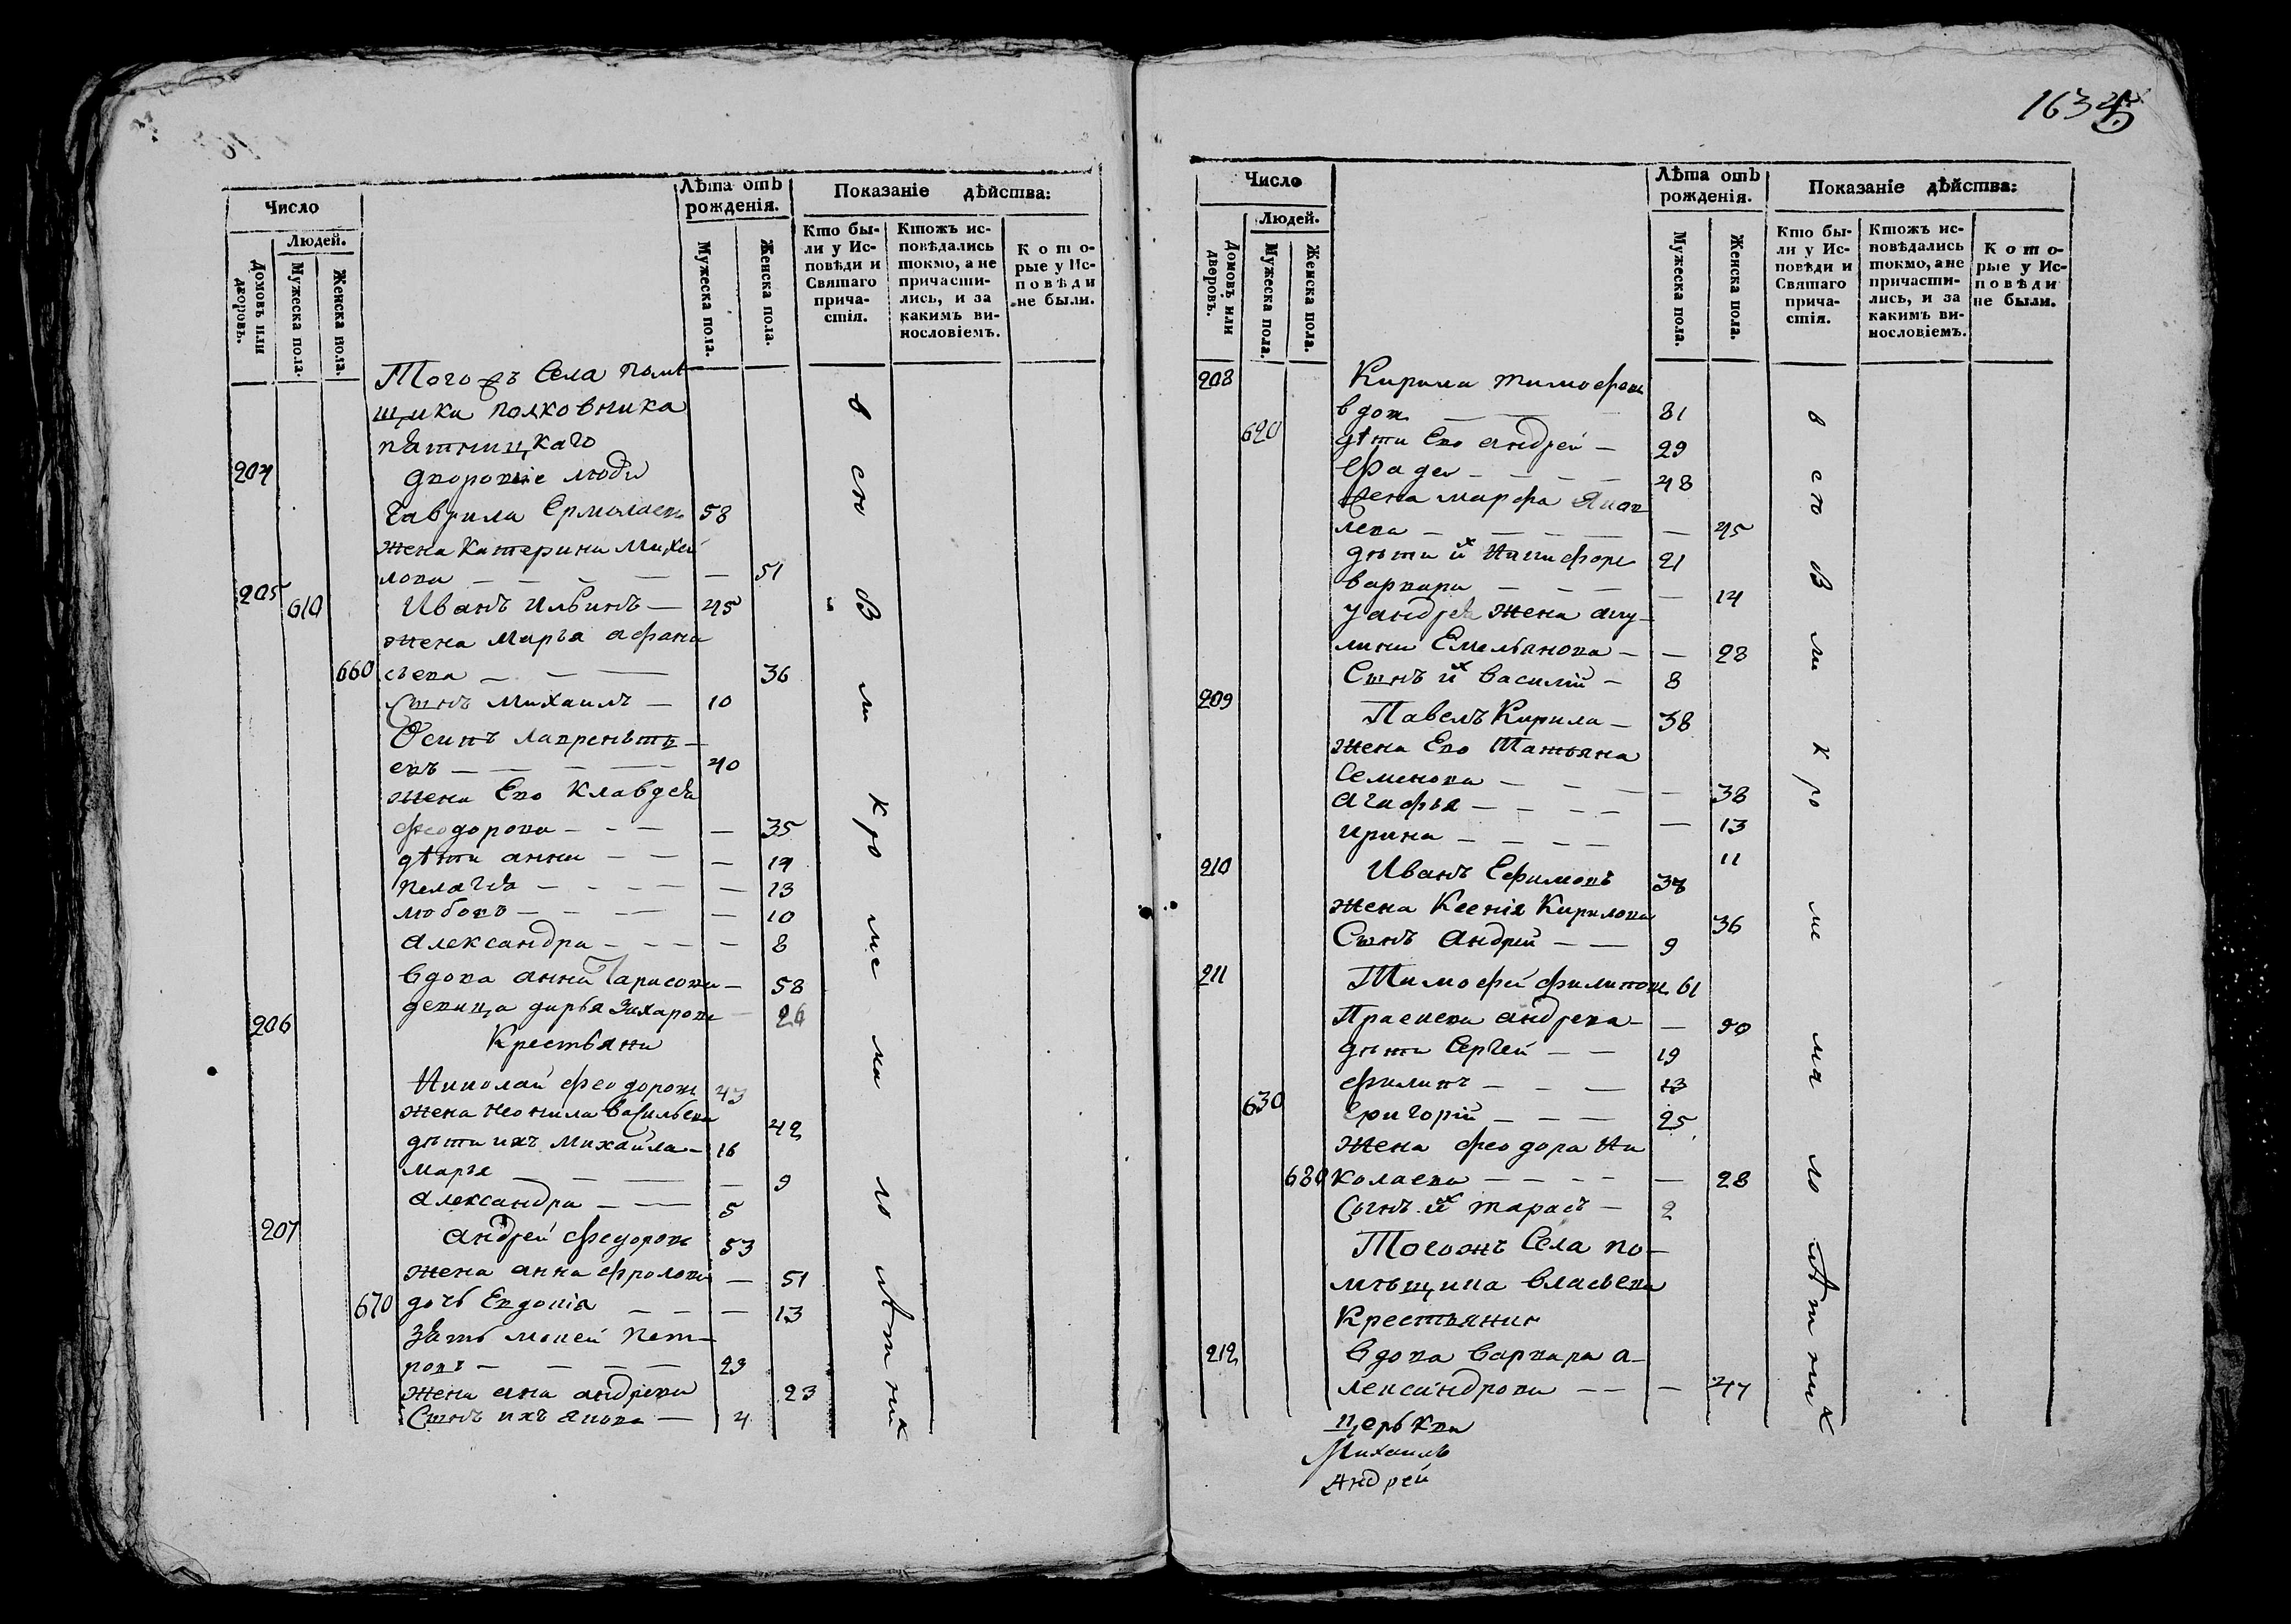 Число
Людей.
Домовъ или дворовъ.
Мужеска пола.
Женска пола.
Лѣта отъ рожденія.
Мужеска пола.
Женска пола.
Показаніе дѣйства:
Кто бы-
ли у Ис-
повѣди и
Святаго
прича-
стія.
Ктожъ ис-
повѣдались
токмо, а не
причасти-
лись, и за
какимъ ви-
нословіемъ.
Кото-
рые у Ис-
повѣди
не были.
Тогожъ Села помѣ
щика полковника
пятницкаго
204 дворовые люди
Гаврила Ермолаевъ 58
жена Катерина Михай
лова — — — — — 51
205 610 Иванъ Ильинъ — 45
жена Марья афана
660 сьева — — — 36
Сынъ Михаилъ — 10
Осипъ лаврентъ —
евъ — — — — 40
жена Ево Клавдея
феодорова — — — — 35
дѣти анна — — — 14
пелагея — — — — — 13
любовъ — — — — 10
александра — — — — 8
вдова анна Тарасова — 58
девица дарья Захарова — 26
206 Крестьяни
Николай феодоровъ 43
жена неонила васильева 42
дѣти ихъ михайла — 16
марья — — — — 9
александра — — 5
207 андрей федоровъ 53
жена анна фролова — 51
670 дочь Евдокія — — — 13
Зять мокей пет—
ровъ — — — — 23
жена анна андреева 23
Сынъ ихъ якова — 4
в сю В ми к ро ме на ло Ятних
1634
5
Число
Людей.
Домовъ или дворовъ.
Мужеска пола.
Женска пола.
Лѣта отъ рожденія.
Мужеска пола.
Женска пола.
Показаніе дѣйства:
Кто бы-
ли у Ис-
повѣди и
Святаго
прича-
стія.
Ктожъ ис-
повѣдались
токмо, а не
причасти-
лись, и за
какимъ ви-
нословіемъ.
Кото-
рые у Ис-
повѣди
не были.
208 Кирила тимофеевъ
вдов — — 81
620 дѣти Ево андрей — 29
Фадей — — — 48
жена марфа Яков
лева — — — — — 45
дѣти их Никифоръ 21
варвара — — — — 14
у андрея жена аку—
лина Емельянова — — 28
Сынъ их василій — 8
209 Павелъ Кирила — 38
жена Ево Татьяна
Семенова — — — — 38
агафья — — — — — 13
ирина — — — — 11
210 Иванъ Ефимовъ 38
жена Ксенія Кирилова 36
Сынъ андрей — — 9
211 Тимофей филиповъ 61
Прасковя андрева — — 50
дѣти Сергей — — 19
филипъ — — — 13
630 Григорій — — — 25
жена феодора Ни
680 колаева — — — — — 28
Сынъ их тарасъ — 2
Тогожъ Села по—
мѣщика власьева
Крестьяния
212 вдова варвара а—
лександрова — — — 47
в сю В ми к ро ме ма ло Ятних
церькви
Михаилъ
Андрей